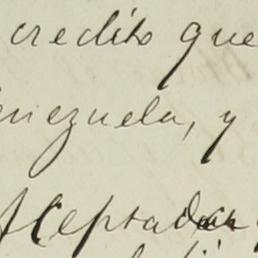 credito que
enezuela, y
Aceptadas